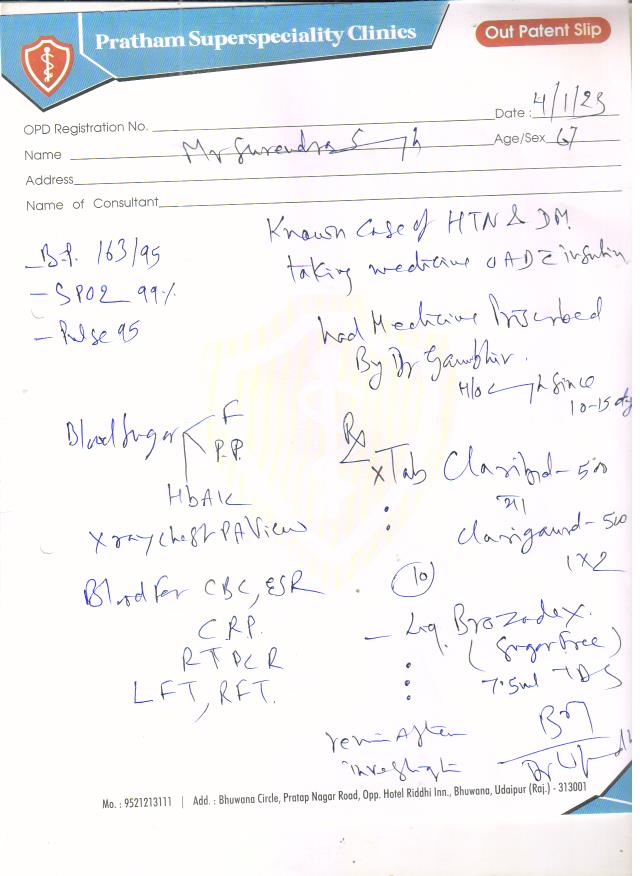 Pratham Superspeciality Clinics
Out Patent Slip
Date : 4/1/23
OPD Registration No.
Name Mr Surendra Singh
Age/Sex 67
Address
Name of Consultant
Known Case of HTN & DM
taking medicine OAD c insulin
had Medicine Priscrbed
By Dr Gambhir.
H/o since
10-15 day
- B.P. 163/95
- SPO2 99%
- Pulse 95
Blood Sugar F
P.P.
HbA1c
X ray chest PA View
Blood For CBC, ESR
CRP.
RT PCR
LFT, RFT.
Rx
x Tab Claribid - 500
या
Clarigaurd - 500
1x2
10
- Liq. Brozadex.
(Sugar Free)
7.5ml TDS
After
Mo. : 9521213111 | Add. : Bhuwana Circle, Pratap Nagar Road, Opp. Hotel Riddhi Inn., Bhuwana, Udaipur (Raj.) - 313001